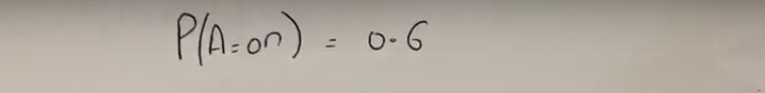 P(A=on) = 0.6